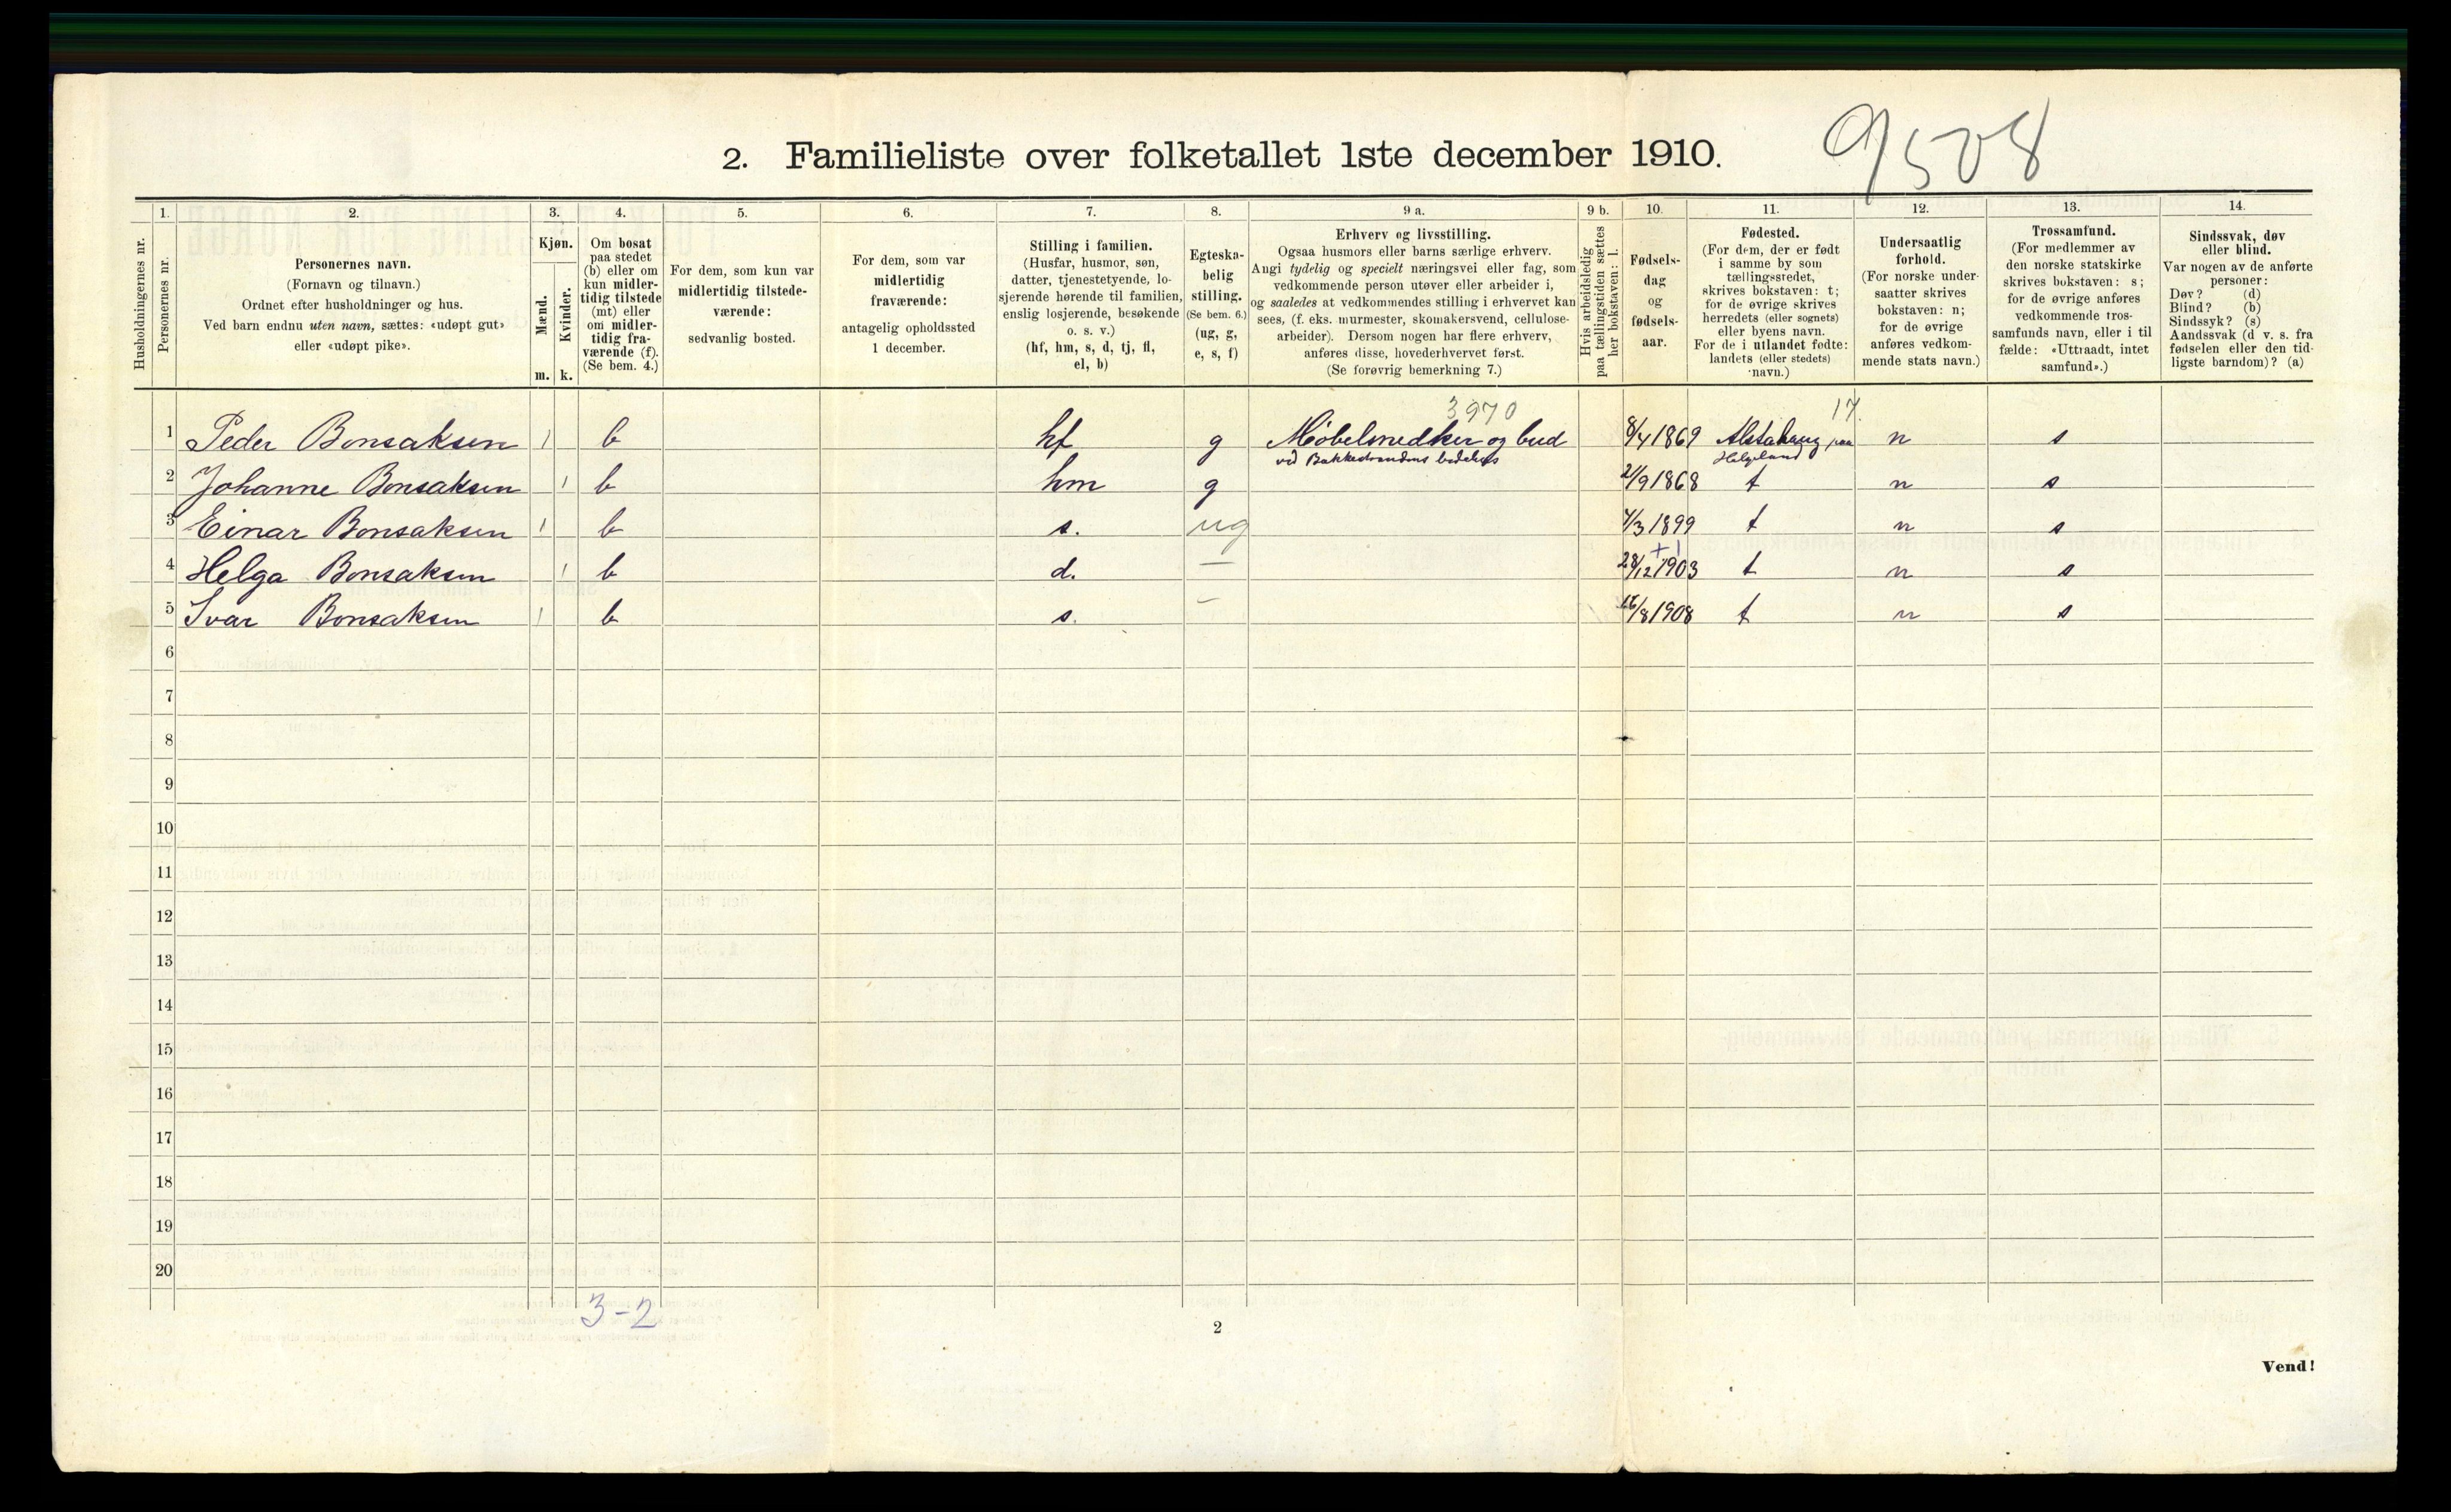 2. Familieliste over folketallet 1ste december 1910.
9508
Husholdningernes nr.
1.
Personernes nr.
2.
Personernes navn.
(Fornavn og tilnavn.)
Ordnet efter husholdninger og hus.
Ved barn endnu uten navn, sættes: «udøpt gut»
eller «udøpt pike».
3.
Kjøn.
Mænd.
Kvinder.
m. k.
4.
Om bosat
paa stedet
(b) eller om
kun midler-
tidig tilstede
(mt) eller
om midler-
tidig fra-
værende (f).
(Se bem. 4.)
5.
For dem, som kun var
midlertidig tilstede-
værende:
sedvanlig bosted.
6.
For dem, som var
midlertidig
fraværende:
antagelig opholdssted
1 december.
7.
Stilling i familien.
(Husfar, husmor, søn,
datter, tjenestetyende, lo-
sjerende hørende til familien,
enslig losjerende, besøkende
o. s. v.)
(hf, hm, s, d, tj, fl,
el, b)
8.
Egteska-
belig
stilling.
(Se bem. 6.)
(ug, g,
e, s, f)
9 a.
Erhverv og livsstilling.
Ogsaa husmors eller barns særlige erhverv.
Angi tydelig og specielt næringsvei eller fag, som
vedkommende person utøver eller arbeider i,
og saaledes at vedkommendes stilling i erhvervet kan
sees, (f. eks. murmester, skomakersvend, cellulose-
arbeider). Dersom nogen har flere erhverv,
anføres disse, hovederhvervet først.
(Se forøvrig bemerkning 7.)
9 b.
Hvis arbeidsledig
paa tællingstiden sættes
her bokstaven: l.
10.
Fødsels-
dag
og
fødsels-
aar.
11.
Fødested.
(For dem, der er født
i samme by som
tællingsstedet,
skrives bokstaven: t;
for de øvrige skrives
herredets (eller sognets)
eller byens navn.
For de i utlandet fødte:
landets (eller stedets)
navn.)
12.
Undersaatlig
forhold.
(For norske under-
saatter skrives
bokstaven: n;
for de øvrige
anføres vedkom-
mende stats navn.)
13.
Trossamfund.
(For medlemmer av
den norske statskirke
skrives bokstaven: s;
for de øvrige anføres
vedkommende tros-
samfunds navn, eller i til
fælde: «Uttraadt, intet
samfund».)
14.
Sindssvak, døv
eller blind.
Var nogen av de anførte
personer:
Døv? (d)
Blind? (b)
Sindssyk? (s)
Aandssvak (d v. s. fra
fødselen eller den tid-
ligste barndom)? (a)
3970 17.
1 Peder Bonsaksen 1 b hf g Møbelsnedker og bud 8/4 1869 Alstahaug paa n s
ved Bakkestrandens Helgeland
2 Johanne Bonsaksen 1 b hm g 21/9 1868 t n s
3 Einar Bonsaksen 1 b s. ug 4/3 1899 t n s
+ 1
4 Helga Bonsaksen 1 b d. — 28/12 1903 t n s
5 Ivar Bonsaksen 1 b s. — /8 1908 t n s
6
7
8
9
10
11
12
13
14
15
16
17
18
19
20
3-2
2
Vend!